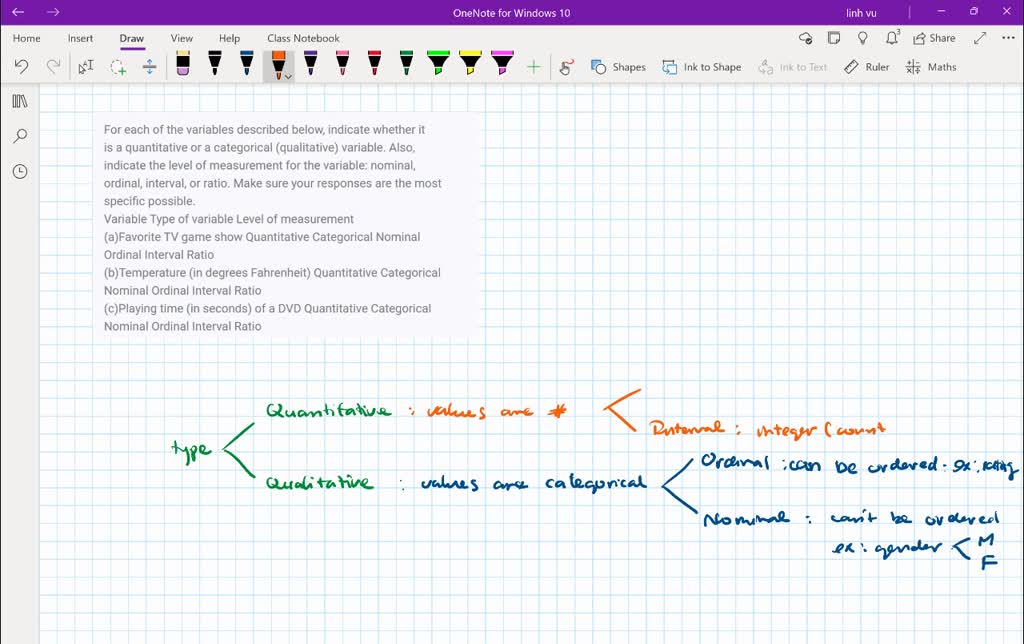 OneNote for Windows 10
linh vu
Home Insert Draw View Help Class Notebook
Share
Shapes Ink to Shape Ink to Text Ruler Maths
For each of the variables described below, indicate whether it
is a quantitative or a categorical (qualitative) variable. Also,
indicate the level of measurement for the variable: nominal,
ordinal, interval, or ratio. Make sure your responses are the most
specific possible.
Variable Type of variable Level of measurement
(a)Favorite TV game show Quantitative Categorical Nominal
Ordinal Interval Ratio
(b)Temperature (in degrees Fahrenheit) Quantitative Categorical
Nominal Ordinal Interval Ratio
(c)Playing time (in seconds) of a DVD Quantitative Categorical
Nominal Ordinal Interval Ratio
Quantitative : values are #
Interval : integer (count
type
Ordinal : can be ordered. ex: rating
Qualitative : values are categorical
Nominal : can't be ordered
ex: gender M
F